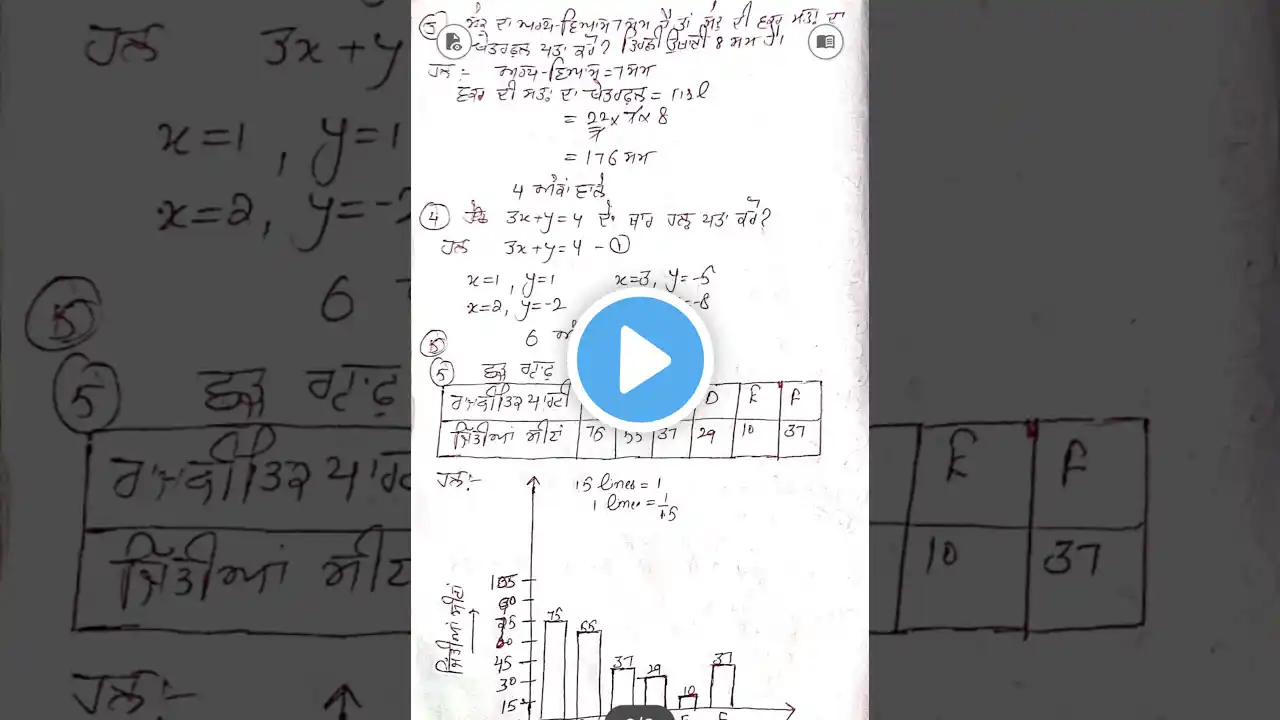 ③ ਸ਼ੰਕੂ ਦਾ ਅਰਧ-ਵਿਆਸ 7 ਸਮ ਹੈ ਤਾਂ ਸ਼ੰਕੂ ਦੀ ਵਕਰ ਸਤਹ ਦਾ
ਖੇਤਰਫ਼ਲ ਪਤਾ ਕਰੋ? ਤਿਰਛੀ ਉਚਾਈ 8 ਸਮ ਹੈ।
ਹਲ :- ਅਰਧ-ਵਿਆਸ = 7 ਸਮ
ਵਕਰ ਦੀ ਸਤਹ ਦਾ ਖੇਤਰਫ਼ਲ = πrl
= 22/7 x 7 x 8
= 176 ਸਮ
4 ਅੰਕਾਂ ਵਾਲੇ
④ 3x+y=4 ਦੇ ਚਾਰ ਹਲ ਪਤਾ ਕਰੋ?
ਹਲ 3x+y=4 - ①
x=1, y=1 x=3, y=-5
x=2, y=-2 y=-8
6
⑤ ਛੜ ਗ੍ਰਾਫ਼
ਰਾਜਨੀਤਿਕ ਪਾਰਟੀ D E F
ਜਿੱਤੀਆਂ ਸੀਟਾਂ 75 55 37 29 10 37
ਹਲ:- 15 lines = 1
1 lines = 1/15
ਜਿੱਤੀਆਂ ਸੀਟਾਂ
105
90
75
60
45
30
15
75 55 37 29 10 37
E F
ਹਲ 3x+y
x=1, y=1
x=2, y=-2
6
⑤ ਛੜ ਗ੍ਰਾਫ਼
E F
ਜਿੱਤੀਆਂ ਸੀਟਾਂ 10 37
ਹਲ:-